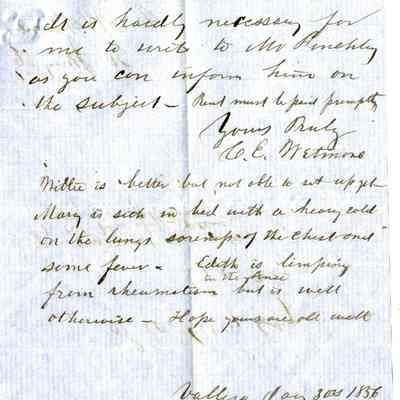 It is hardly necessary for
me to write to Mr Pinchley
as you can inform him on
the subject — Rent must be paid promptly
Yours Truly
C. E. Wetmore
Willie is better but not able to set up yet
Mary is sick in bed with a heavy cold
on the lungs soreness of the chest and
some fever — Edith is limping
in the knee
from rheumatism but is well
otherwise — Hope yours are all well